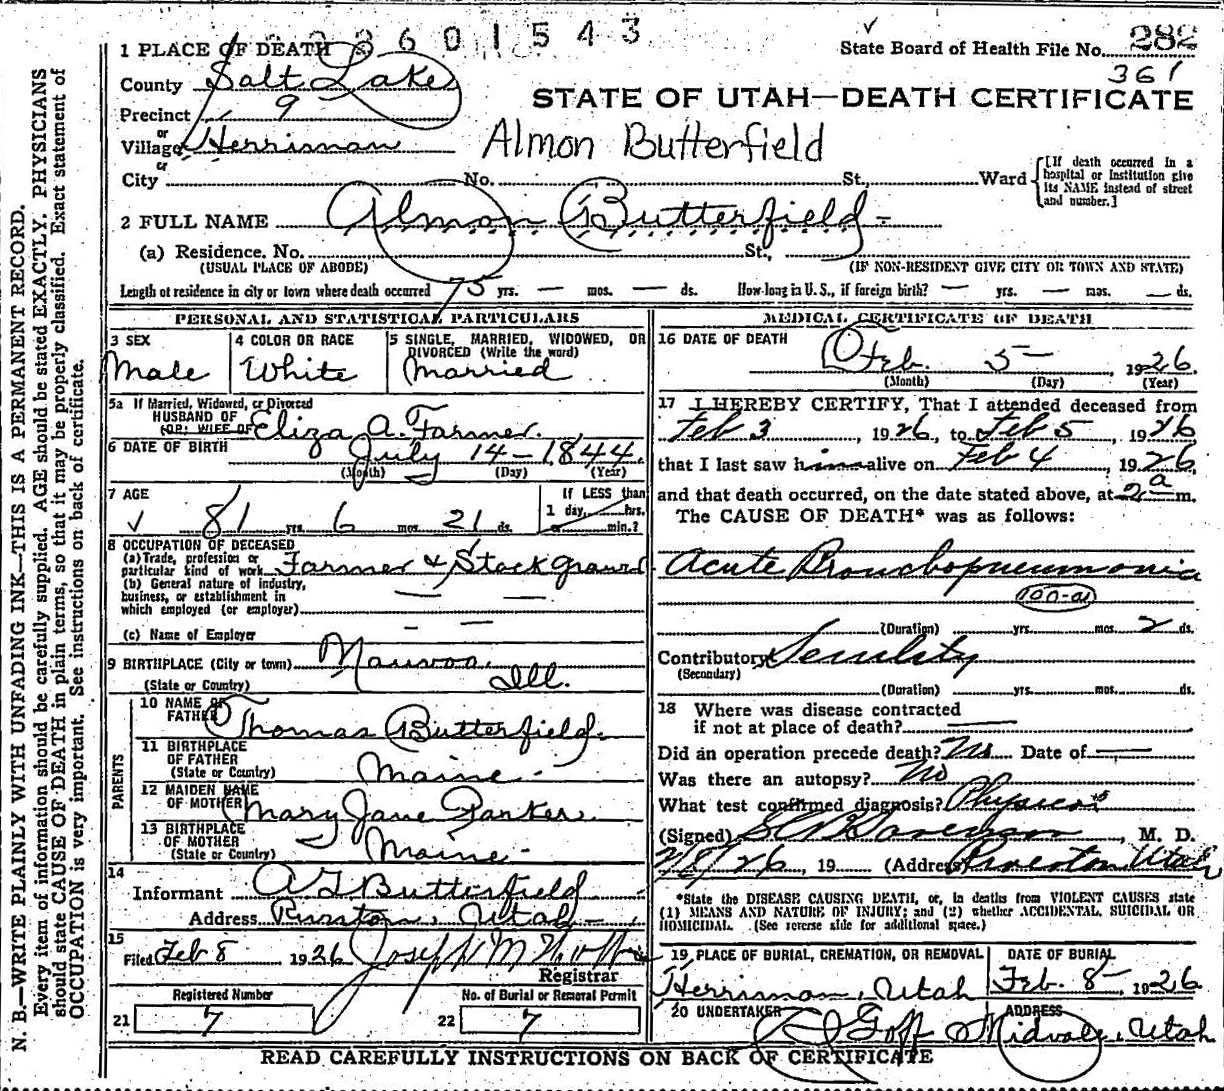 2 3 6 0 1 5 4 3
1 PLACE OF DEATH
State Board of Health File No. 282
361
County Salt Lake
STATE OF UTAH—DEATH CERTIFICATE
Precinct 9
or
Village Herriman
Almon Butterfield
or
City No. St., Ward
[If death occurred in a hospital or institution give its NAME instead of street and number.]
2 FULL NAME Almon Butterfield
(a) Residence. No. St.,
(USUAL PLACE OF ABODE) (IF NON-RESIDENT GIVE CITY OR TOWN AND STATE)
Length of residence in city or town where death occurred 75 yrs. — mos. — ds. How long in U.S., if foreign birth? — yrs. — mos. — ds.
PERSONAL AND STATISTICAL PARTICULARS
3 SEX Male
4 COLOR OR RACE White
5 SINGLE, MARRIED, WIDOWED, OR
DIVORCED (Write the word)
Married
5a If Married, Widowed, or Divorced
HUSBAND OF
(OR) WIFE OF Eliza A. Farmer.
6 DATE OF BIRTH July 14 - 1844
(Month) (Day) (Year)
7 AGE
81 yrs. 6 mos. 21 ds.
If LESS than
1 day, hrs.
or min.?
8 OCCUPATION OF DECEASED
(a) Trade, profession or
particular kind of work Farmer &
(b) General nature of industry,
business, or establishment in
which employed (or employer)
(c) Name of Employer — —
9 BIRTHPLACE (City or town) Nauvoo.
(State or Country) Ill.
PARENTS
10 NAME OF
FATHER Thomas Butterfield.
11 BIRTHPLACE
OF FATHER
(State or Country) Maine -
12 MAIDEN NAME
OF MOTHER Mary Jane Parker.
13 BIRTHPLACE
OF MOTHER
(State or Country) Maine -
14
Informant Butterfield
Address Utah -
15
Filed Feb 8 1926 Joseph M
Registrar
Registered Number
21 7
No. of Burial or Removal Permit
22 7
MEDICAL CERTIFICATE OF DEATH
16 DATE OF DEATH Feb. 5 - 1926.
(Month) (Day) (Year)
17 I HEREBY CERTIFY, That I attended deceased from
Feb 3, 1926, to Feb 5, 1926
that I last saw him alive on Feb 4, 1926,
and that death occurred, on the date stated above, at 2 a m.
The CAUSE OF DEATH* was as follows:
Acute Bronchopneumonia
100-a
(Duration) yrs. mos. 2 ds.
Contributory Senility
(Secondary)
(Duration) yrs. mos. ds.
18 Where was disease contracted
if not at place of death? —
Did an operation precede death? No Date of —
Was there an autopsy? No
What test confirmed diagnosis?
(Signed) M. D.
26, 19 (Address) Utah
*State the DISEASE CAUSING DEATH, or, in deaths from VIOLENT CAUSES state
(1) MEANS AND NATURE OF INJURY; and (2) whether ACCIDENTAL, SUICIDAL OR
HOMICIDAL. (See reverse side for additional space.)
19 PLACE OF BURIAL, CREMATION, OR REMOVAL
Herriman, Utah
DATE OF BURIAL
Feb. 8 - 1926
20 UNDERTAKER Goff
ADDRESS
Midvale, Utah
READ CAREFULLY INSTRUCTIONS ON BACK OF CERTIFICATE
N. B.—WRITE PLAINLY WITH UNFADING INK—THIS IS A PERMANENT RECORD.
Every item of information should be carefully supplied. AGE should be stated EXACTLY. PHYSICIANS
should state CAUSE OF DEATH in plain terms, so that it may be properly classified. Exact statement of
OCCUPATION is very important. See instructions on back of certificate.